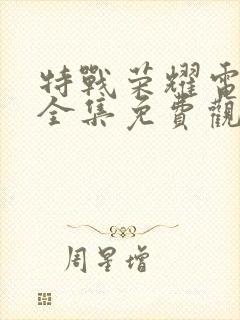 特戰荣耀電
全集免費觀
周星增